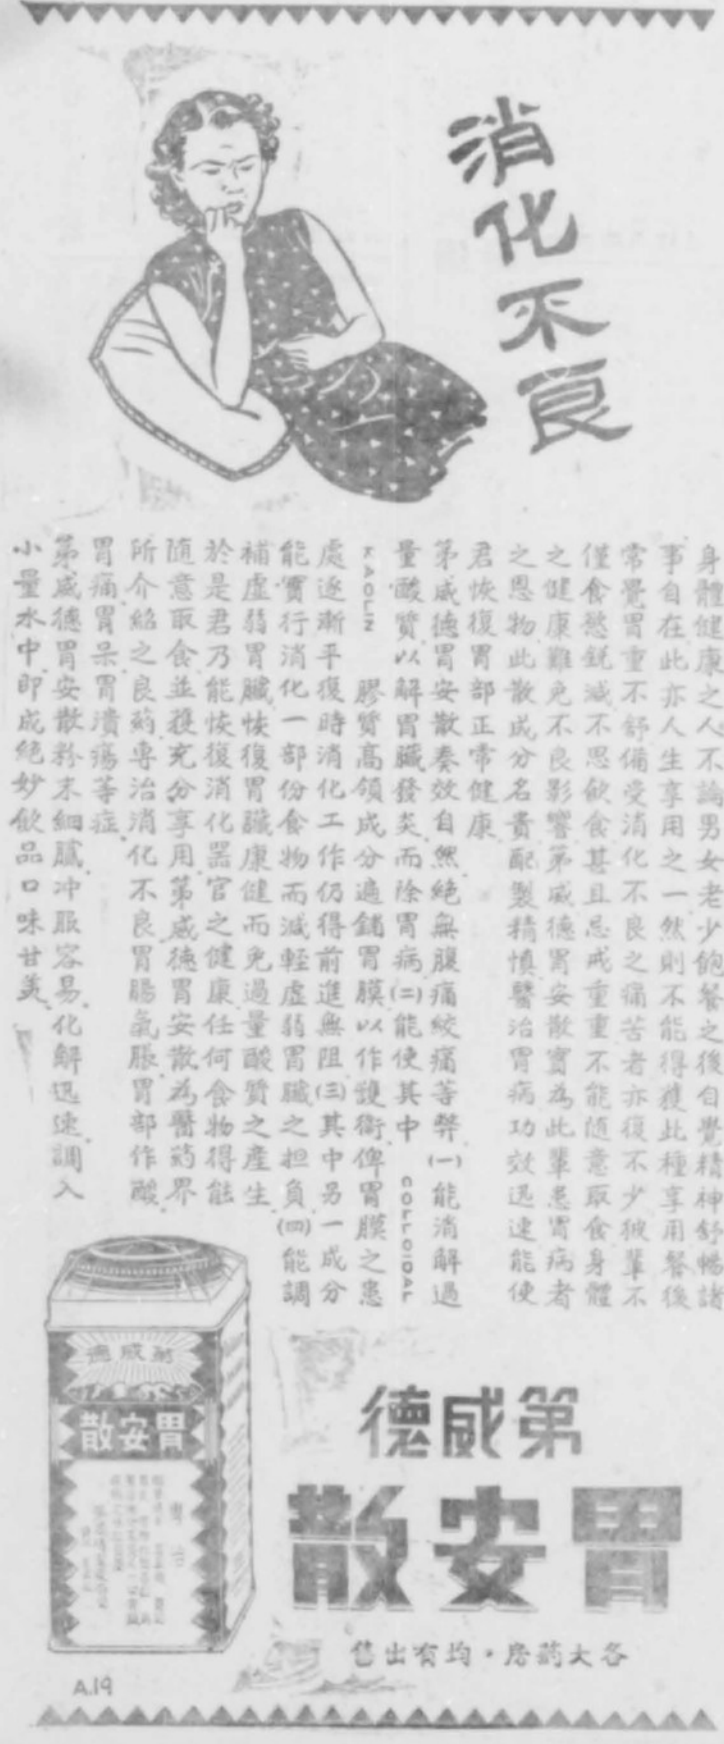 消化不良
身體健康之人不論男女老少飽餐之後自覺精神舒暢諸
事自在此亦人生享用之一然則不能得獲此種享用餐後
常覺胃重不舒備受消化不良之痛苦者亦復不少彼輩不
僅食慾銳減不思飲食甚且忌戒重重不能隨意取食身體
之健康難免不良影響第威德胃安散實為此輩患胃病者
之恩物此散成分名貴配製精慎醫治胃病功效迅速能使
君恢復胃部正常健康
第威德胃安散奏效自然絕無腹痛絞痛等弊(一)能消解過
量酸質以解胃臟發炎而除胃病(二)能使其中 COLLOIDAL
KAOLIN 膠質高領成分遍鋪胃膜以作護衛俾胃膜之患
處逐漸平復時消化工作仍得前進無阻(三)其中另一成分
能實行消化一部份食物而減輕虛弱胃臟之担負(四)能調
補虛弱胃臟恢復胃臟康健而免過量酸質之產生
於是君乃能恢復消化器官之健康任何食物得能
隨意取食並獲充分享用第威德胃安散為醫葯界
所介紹之良葯專治消化不良胃腸氣脹胃部作酸
胃痛胃呆胃潰瘍等症
第威德胃安散粉末細膩冲服容易化解迅速調入
小量水中即成絕妙飲品口味甘美
第威德
胃安散
專治
第威德
胃安散
各大葯房・均有出售
A.19